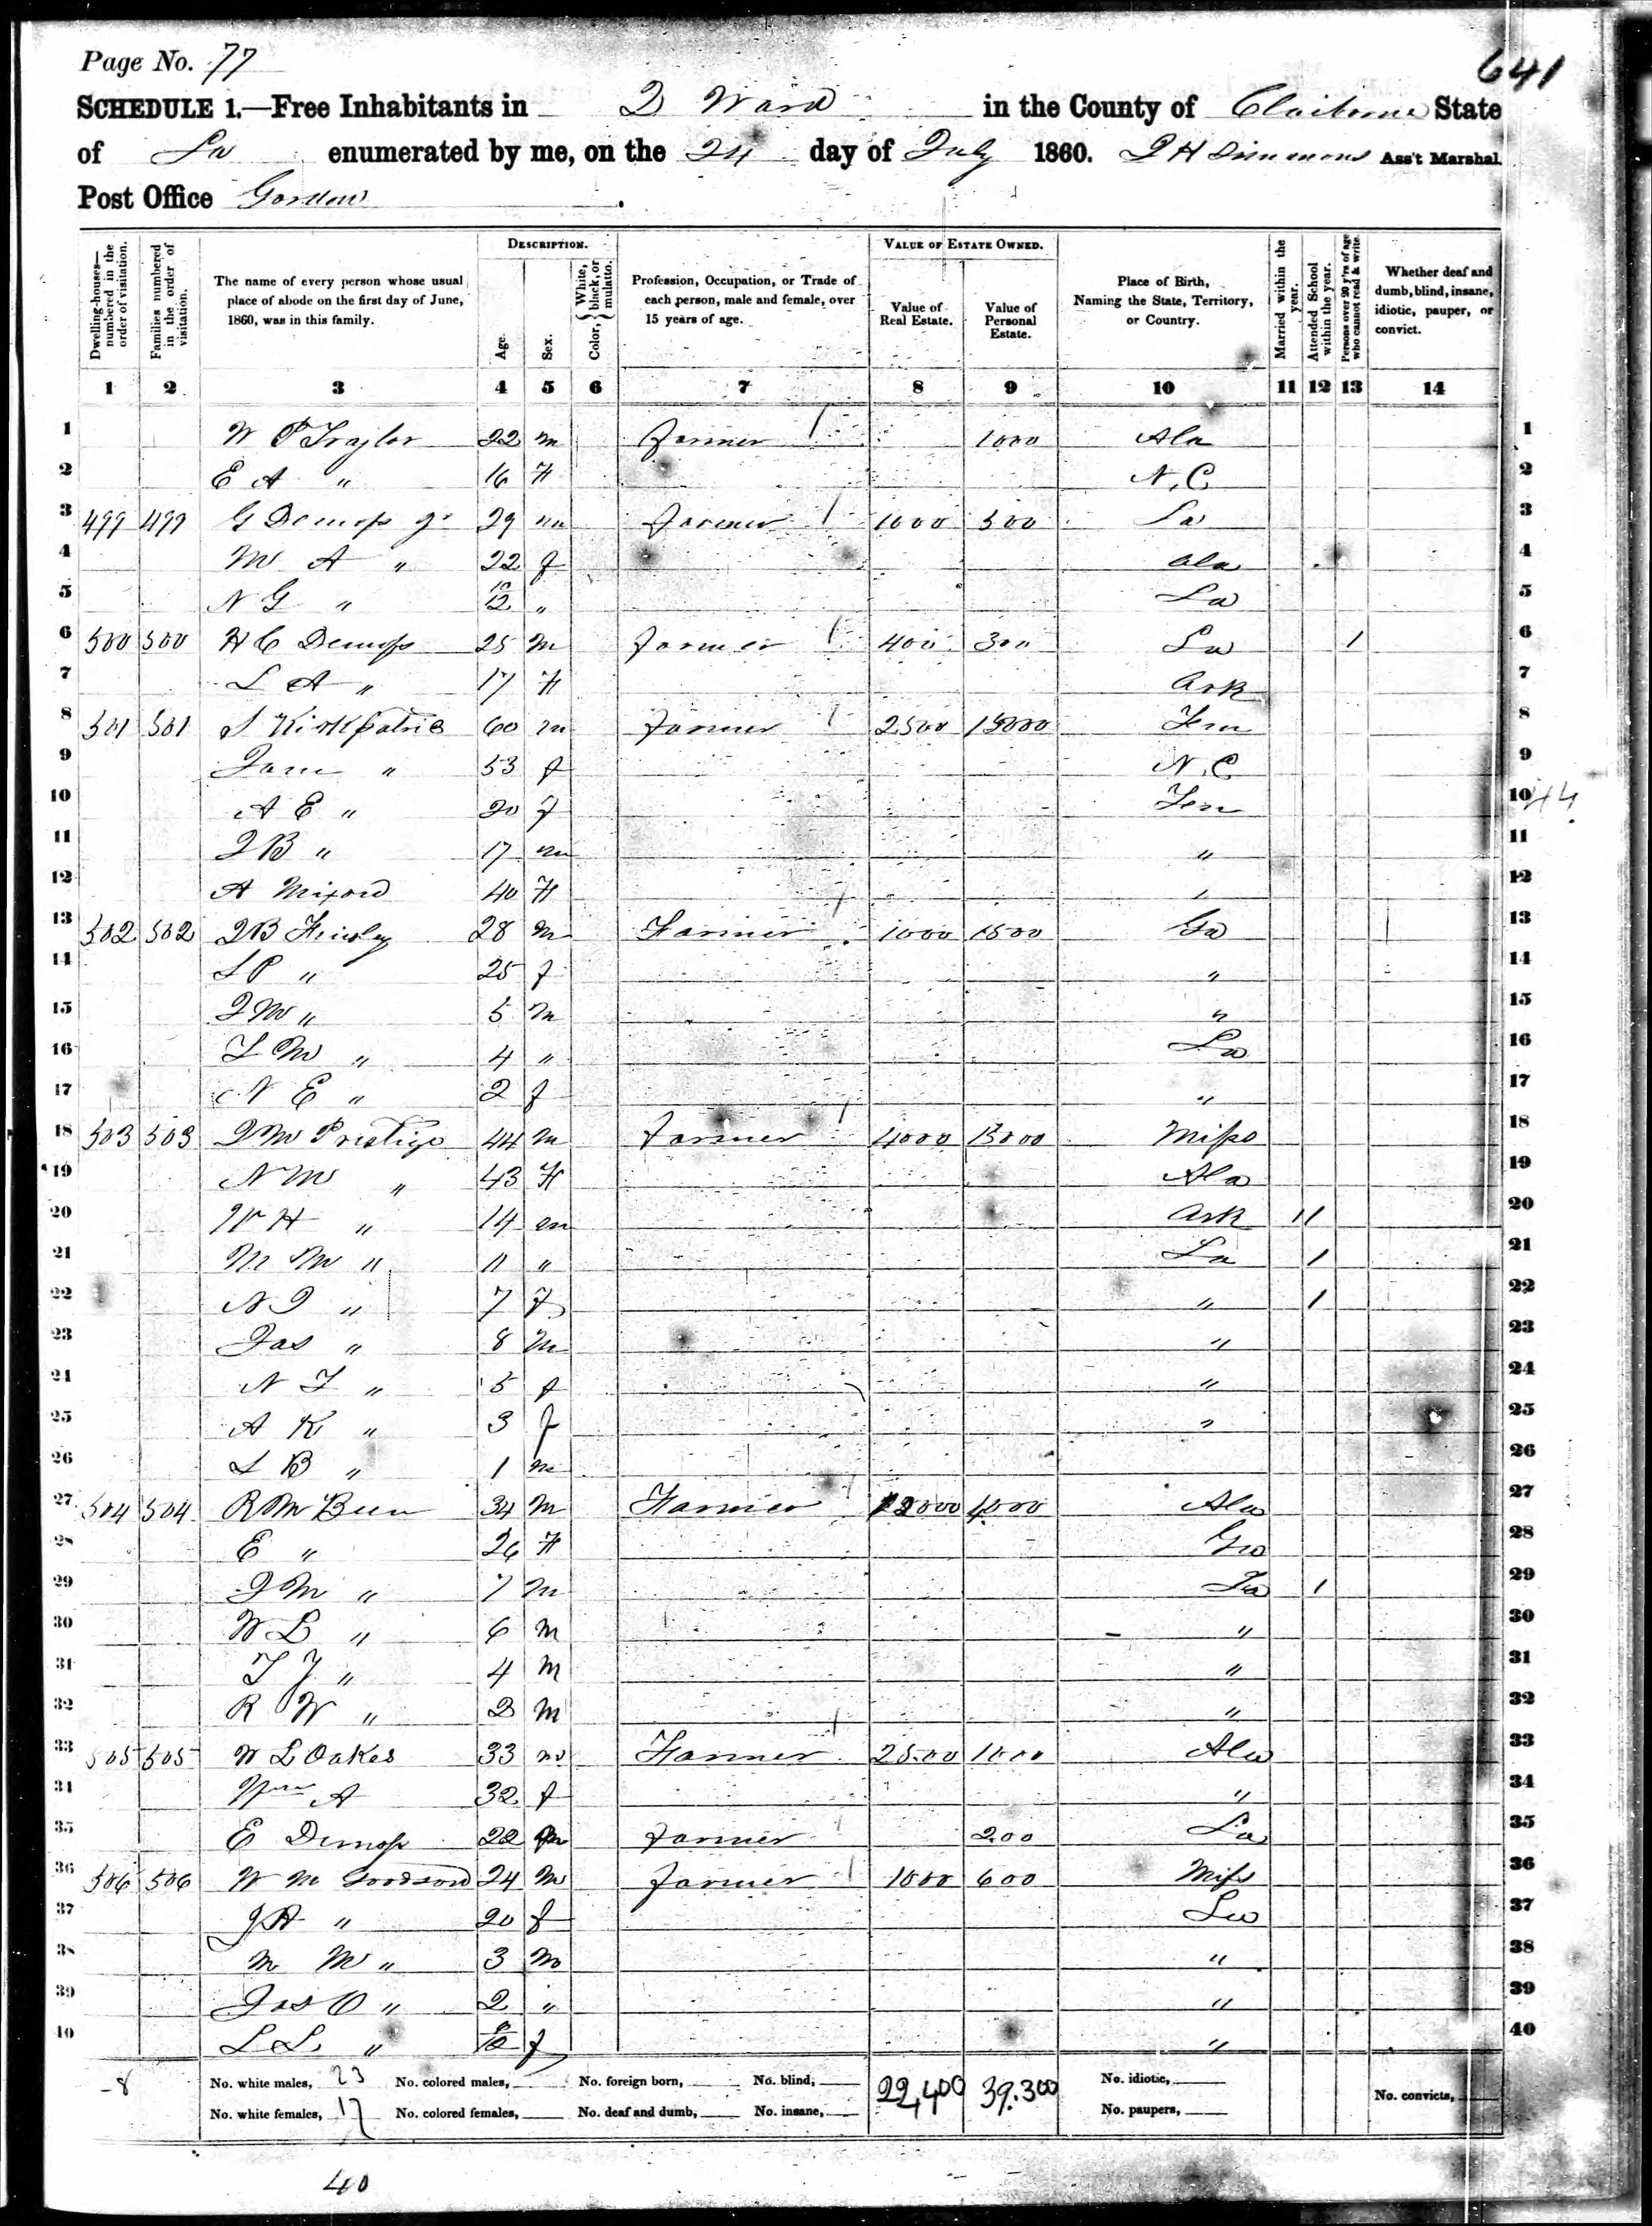 Page No. 77
641
SCHEDULE 1.—Free Inhabitants in 2 Ward in the County of Claiborne State
of La enumerated by me, on the 24 day of July 1860. J H Simmons Ass't Marshal.
Post Office Gordon
Dwelling-houses—numbered in the order of visitation.
Families numbered in the order of visitation.
The name of every person whose usual place of abode on the first day of June, 1860, was in this family.
DESCRIPTION.
Age.
Sex.
Color, { White, black, or mulatto.
Profession, Occupation, or Trade of each person, male and female, over 15 years of age.
VALUE OF ESTATE OWNED.
Value of Real Estate.
Value of Personal Estate.
Place of Birth, Naming the State, Territory, or Country.
Married within the year.
Attended School within the year.
Persons over 20 y'rs of age who cannot read & write.
Whether deaf and dumb, blind, insane, idiotic, pauper, or convict.
1 2 3 4 5 6 7 8 9 10 11 12 13 14
1 W P Traylor 22 m farmer / 1000 Ala 1
2 E A " 16 F N.C 2
3 499 499 G Demops Jr 29 m farmer / 1000 500 La 3
4 M A " 22 f Ala 4
5 N G " 10/12 " La 5
6 500 500 H C Demops 25 m farmer / 400 300 La 1 6
7 L A " 17 F Ark 7
8 501 501 S Kirkpatric 60 m farmer / 2500 15000 Tenn 8
9 Jane " 53 f N.C 9
10 A E " 20 f Tenn 10 44
11 J B " 17 m " 11
12 A Mixon 40 F " 12
13 502 502 J B Hensley 28 m Farmer 1000 1500 Ga 13
14 S P " 25 f " 14
15 J M " 5 m " 15
16 T M " 4 " La 16
17 N E " 2 f " 17
18 503 503 J M 44 m farmer / 4000 15000 Miss 18
19 N M " 43 F Ala 19
20 W H " 14 m Ark 11 20
21 M M " 11 " La 1 21
22 N J " 7 f " 1 22
23 Jas " 8 m " 23
24 N T " 5 f " 24
25 A K " 3 f " 25
26 L B " 1 m 26
27 504 504 R M 34 m Farmer 12000 4000 Ala 27
28 E " 26 F Geo 28
29 J M " 7 m La 1 29
30 W L " 6 m " 30
31 T J " 4 m " 31
32 R W " 2 m " 32
33 505 505 W L Oakes 33 m Farmer / 2500 1000 Ala 33
34 A 32 f " 34
35 E Demops 22 m farmer 200 La 35
36 506 506 W M Goodson 24 m farmer / 1000 600 Miss 36
37 J A " 20 f La 37
38 M M " 3 m " 38
39 Jas O " 2 " " 39
40 L L " f " 40
8 No. white males, 23 No. colored males, No. foreign born, No. blind, 22,400 39.300 No. idiotic,
No. white females, 17 No. colored females, No. deaf and dumb, No. insane, No. paupers, No. convicts,
40